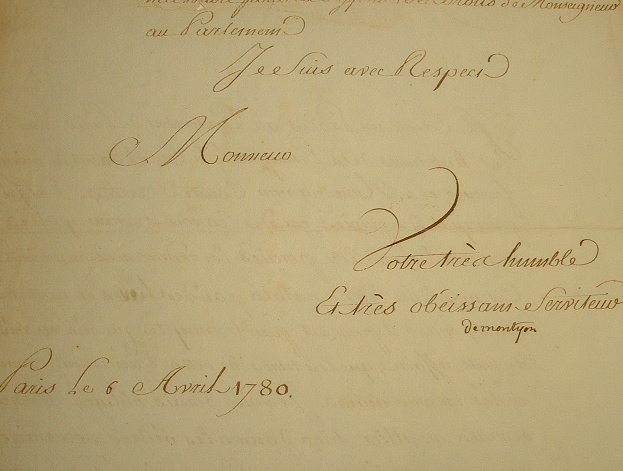 de Monseigneur
au Parlement
Je suis avec Respect
Monsieur
Votre très humble
Et très obéissant Serviteur
demontyon
Paris Le 6 Avril 1780.